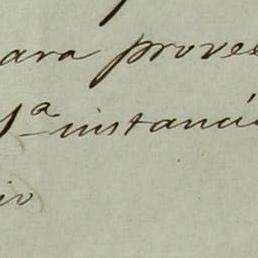 ara provee
1ª instanci
io